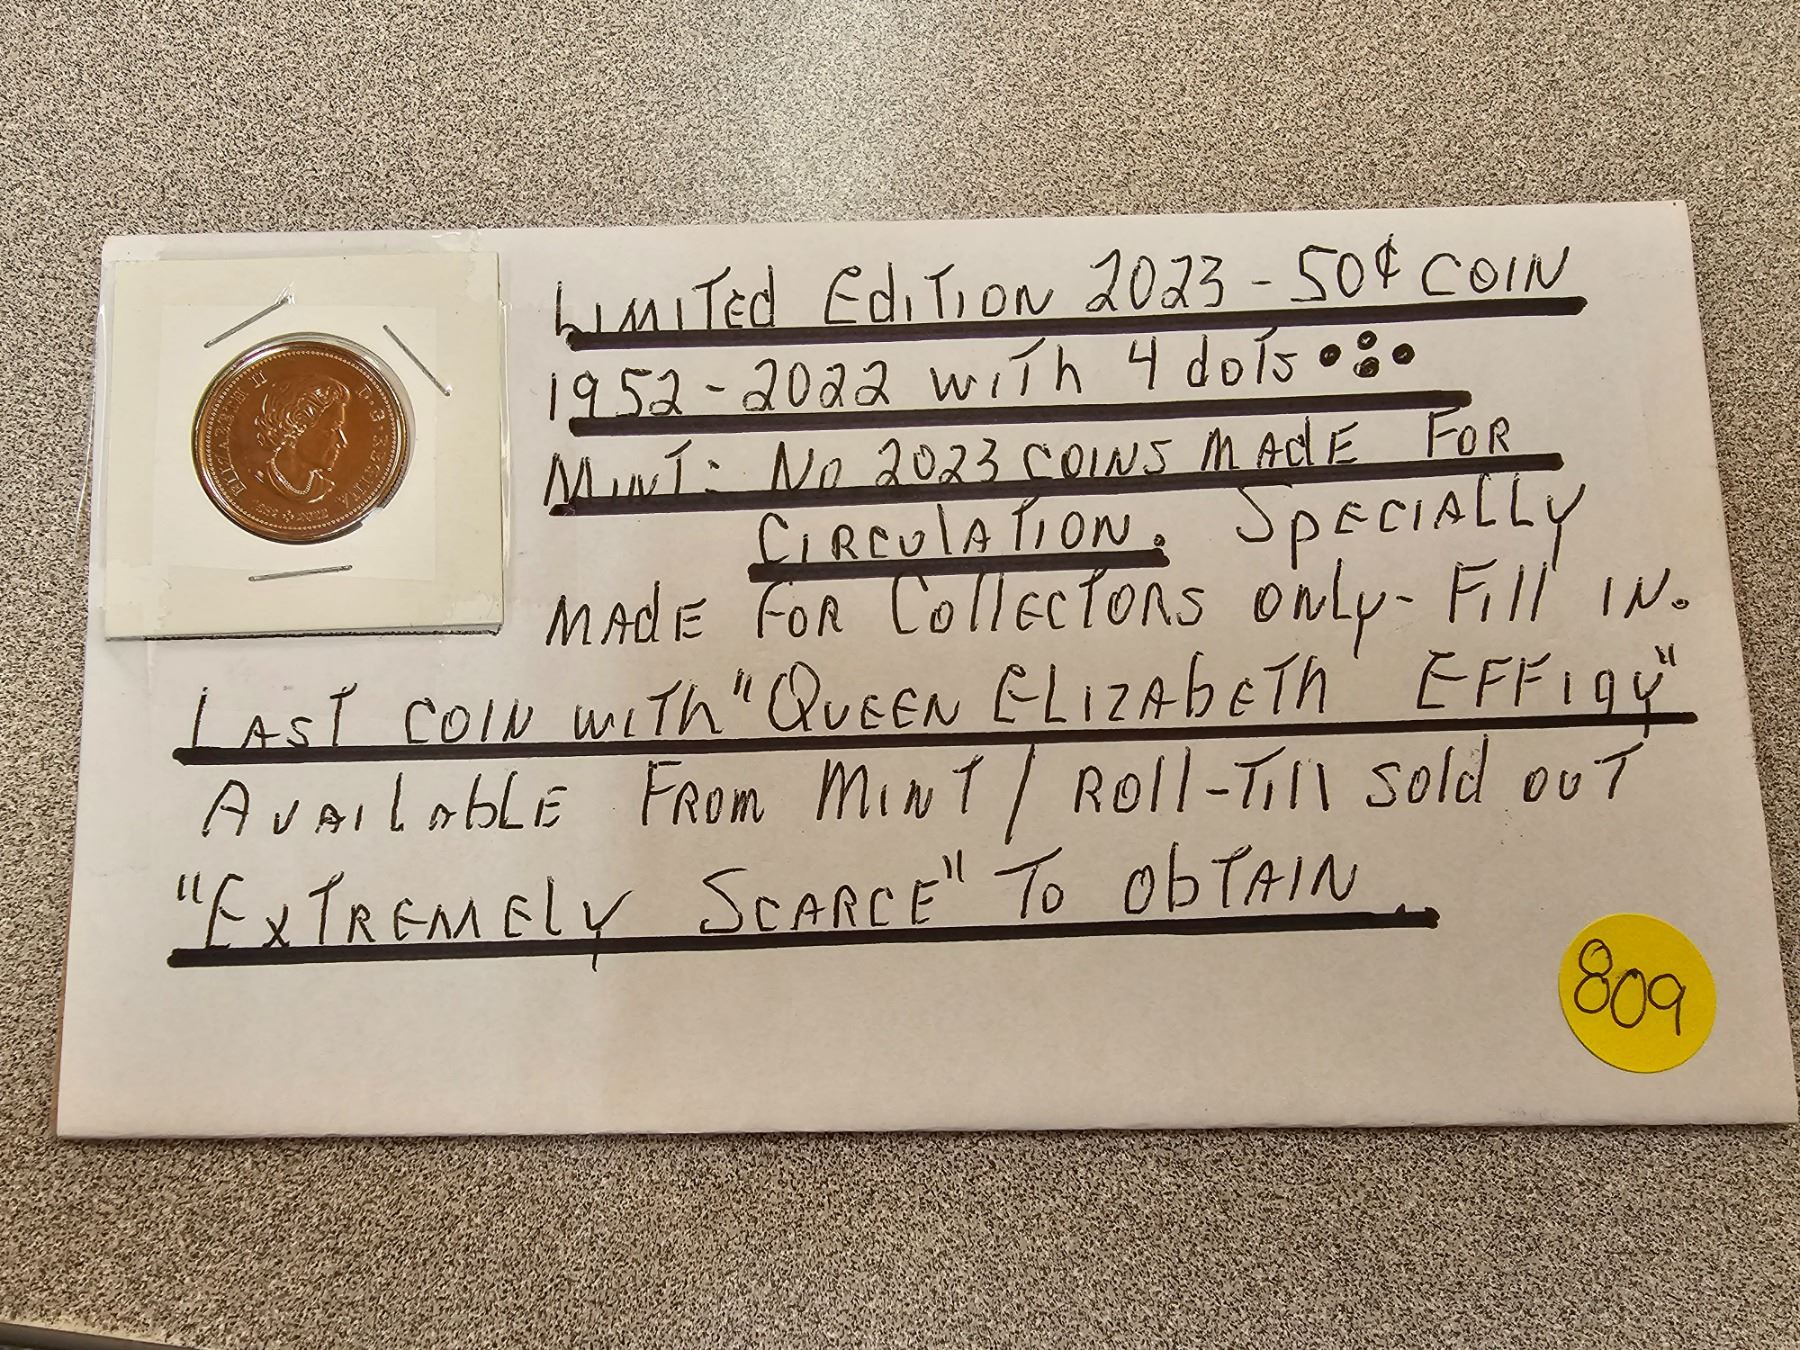 ELIZABETH II D·G·REGINA
1952 2022
LIMITED EDITION 2023 - 50¢ COIN
1952 - 2022 WITH 4 dOTS
MINT: NO 2023 COINS MADE FOR
CIRCULATION. SPECIALLY
MADE FOR COLLECTORS ONLY - FILL IN.
LAST COIN WITH "QUEEN ELIZABETH EFFIGY"
AVAILABLE FROM MINT / ROLL-TILL SOLD OUT
"EXTREMELY SCARCE" TO OBTAIN.
809